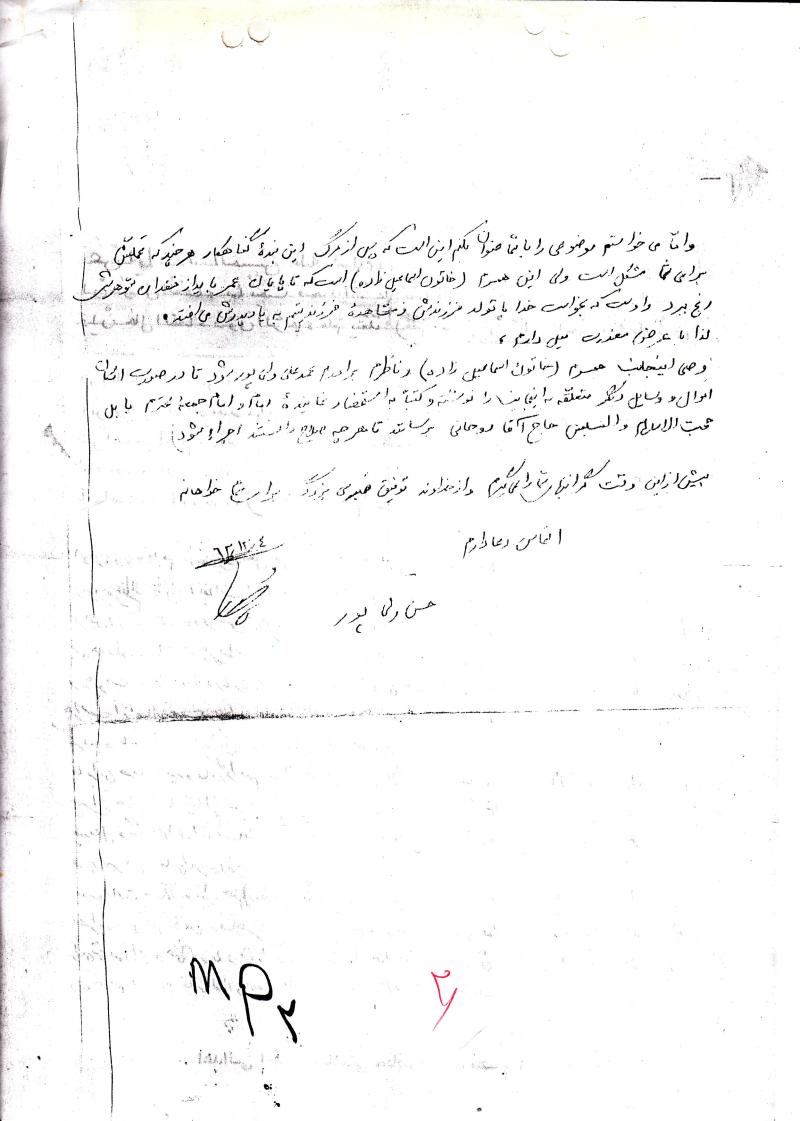 و امّا می خواستم موضوعی را با شما عنوان بکنم این است که پس از مرگ این بندهٔ گناهکار هر چند که تحملش
برای شما مشکل است ولی این همسرم (خاتون اسماعیل زاده) است که تا پایان عمر باید از فقدان شوهرش
رنج ببرد و اوست که بخواست خدا با تولد فرزندش و مشاهدهٔ فرزند یتیم به یاد پدرش می افتد.
لذا با عرض معذرت میل دارم،
وصی اینجانب همسرم (خاتون اسماعیل زاده) و ناظرم برادرم محمد علی ولی پور شود تا در صورت امکان
اموال و وسایل دیگر متعلقه به اینجانب را نوشته و کتباً به استحضار نمایندهٔ امام و امام جمعهٔ محترم بابل
حجت الاسلام والمسلمین حاج آقا روحانی برسانند تا هر چه صلاح دانستند اجراء شود)
بیش از این وقت گرانبهای شما را نمی گیرم و از خداوند توفیق بزرگ برای شما خواهانم
التماس دعا دارم
۶۲/۱۲/۴
حسن ولی پور
MP۲
۲